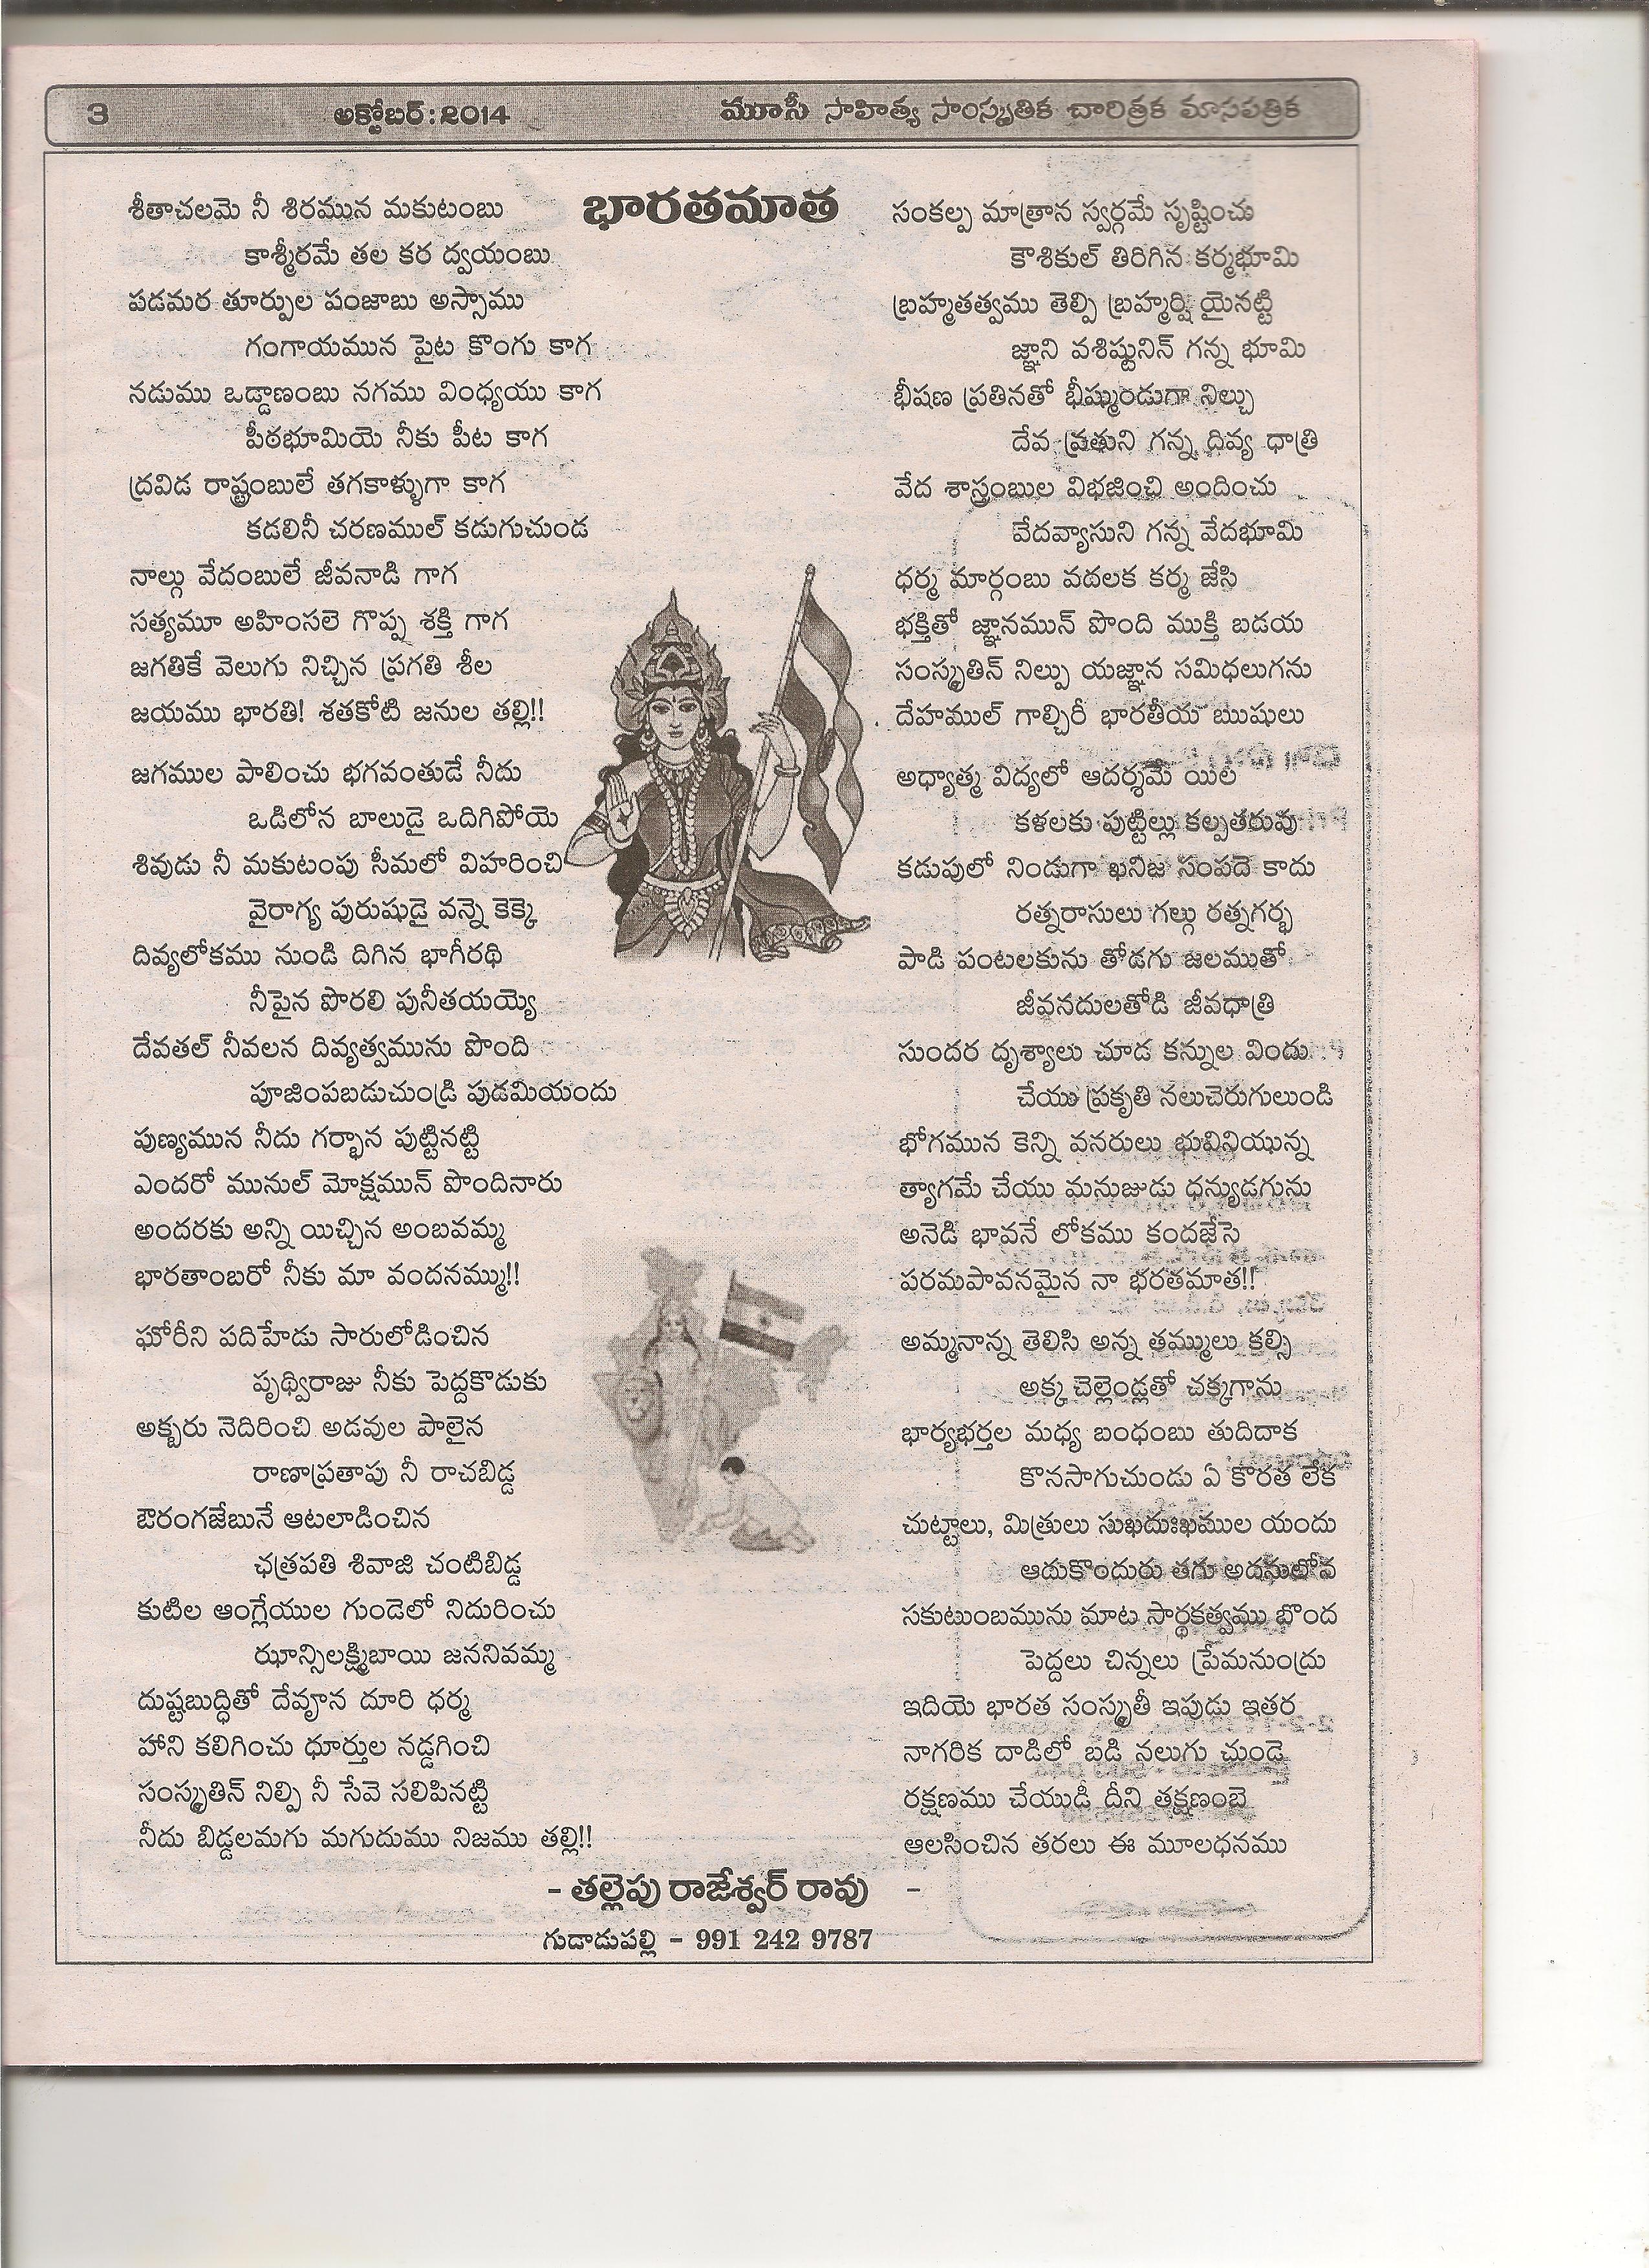 3 అక్టోబర్:2014 మూసీ సాహిత్య సాంస్కృతిక చారిత్రక మాసపత్రిక
భారతమాత
శీతాచలమె నీ శిరమున మకుటంబు
కాశ్మీరమే తల కర ద్వయంబు
పడమర తూర్పుల పంజాబు అస్సాము
గంగాయమున పైట కొంగు కాగ
నడుము ఒడ్డాణంబు నగము వింధ్యయు కాగ
పీఠభూమియె నీకు పీట కాగ
ద్రవిడ రాష్ట్రంబులే తగకాళ్ళుగా కాగ
కడలినీ చరణముల్ కడుగుచుండ
నాల్గు వేదంబులే జీవనాడి గాగ
సత్యమూ అహింసలె గొప్ప శక్తి గాగ
జగతికే వెలుగు నిచ్చిన ప్రగతి శీల
జయము భారతి! శతకోటి జనుల తల్లి!!
జగముల పాలించు భగవంతుడే నీదు
ఒడిలోన బాలుడై ఒదిగిపోయె
శివుడు నీ మకుటంపు సీమలో విహరించి
వైరాగ్య పురుషుడై వన్నె కెక్కె
దివ్యలోకము నుండి దిగిన భాగీరథి
నీపైన పొరలి పునీతయయ్యె
దేవతల్ నీవలన దివ్యత్వమును పొంది
పూజింపబడుచుండ్రి పుడమియందు
పుణ్యమున నీదు గర్భాన పుట్టినట్టి
ఎందరో మునుల్ మోక్షమున్ పొందినారు
అందరకు అన్ని యిచ్చిన అంబవమ్మ
భారతాంబరో నీకు మా వందనమ్ము!!
ఘోరీని పదిహేడు సారులోడించిన
పృథ్విరాజు నీకు పెద్దకొడుకు
అక్బరు నెదిరించి అడవుల పాలైన
రాణాప్రతాపు నీ రాచబిడ్డ
ఔరంగజేబునే ఆటలాడించిన
ఛత్రపతి శివాజి చంటిబిడ్డ
కుటిల ఆంగ్లేయుల గుండెలో నిదురించు
ఝాన్సిలక్ష్మిబాయి జననివమ్మ
దుష్టబుద్ధితో దేవూన దూరి ధర్మ
హాని కలిగించు ధూర్తుల నడ్డగించి
సంస్కృతిన్ నిల్పి నీ సేవె సలిపినట్టి
నీదు బిడ్డలమగు మగుదుము నిజము తల్లి!!
సంకల్ప మాత్రాన స్వర్గమే సృష్టించు
కౌశికుల్ తిరిగిన కర్మభూమి
బ్రహ్మతత్వము తెల్పి బ్రహ్మర్షి యైనట్టి
జ్ఞాని వశిష్టునిన్ గన్న భూమి
భీషణ ప్రతినతో భీష్ముండుగా నిల్చు
దేవ వ్రతుని గన్న దివ్య ధాత్రి
వేద శాస్త్రంబుల విభజించి అందించు
వేదవ్యాసుని గన్న వేదభూమి
ధర్మ మార్గంబు వదలక కర్మ జేసి
భక్తితో జ్ఞానమున్ పొంది ముక్తి బడయ
సంస్కృతిన్ నిల్పు యజ్ఞాన సమిధలుగను
దేహముల్ గాల్చిరీ భారతీయ ఋషులు
అధ్యాత్మ విద్యలో ఆదర్శమే యిల
కళలకు పుట్టిల్లు కల్పతరువు
కడుపులో నిండుగా ఖనిజ సంపదె కాదు
రత్నరాసులు గల్గు రత్నగర్భ
పాడి పంటలకును తోడగు జలముతో
జీవనదులతోడి జీవధాత్రి
సుందర దృశ్యాలు చూడ కన్నుల విందు
చేయు ప్రకృతి నలుచెరుగులుండి
భోగమున కెన్ని వనరులు భువినియున్న
త్యాగమే చేయు మనుజుడు ధన్యుడగును
అనెడి భావనే లోకము కందజేసె
పరమపావనమైన నా భరతమాత!!
అమ్మనాన్న తెలిసి అన్న తమ్ములు కల్సి
అక్క చెల్లెండ్లతో చక్కగాను
భార్యభర్తల మధ్య బంధంబు తుదిదాక
కొనసాగుచుండు ఏ కొరత లేక
చుట్టాలు, మిత్రులు సుఖదుఃఖముల యందు
ఆదుకొందురు తగు అదనులోన
సకుటుంబమును మాట సార్థకత్వము బొంద
పెద్దలు చిన్నలు ప్రేమనుంద్రు
ఇదియె భారత సంస్కృతీ ఇపుడు ఇతర
నాగరిక దాడిలో బడి నలుగు చుండె
రక్షణము చేయుడీ దీని తక్షణంబె
ఆలసించిన తరలు ఈ మూలధనము
- తల్లెపు రాజేశ్వర్ రావు -
గుడాడుపల్లి - 991 242 9787